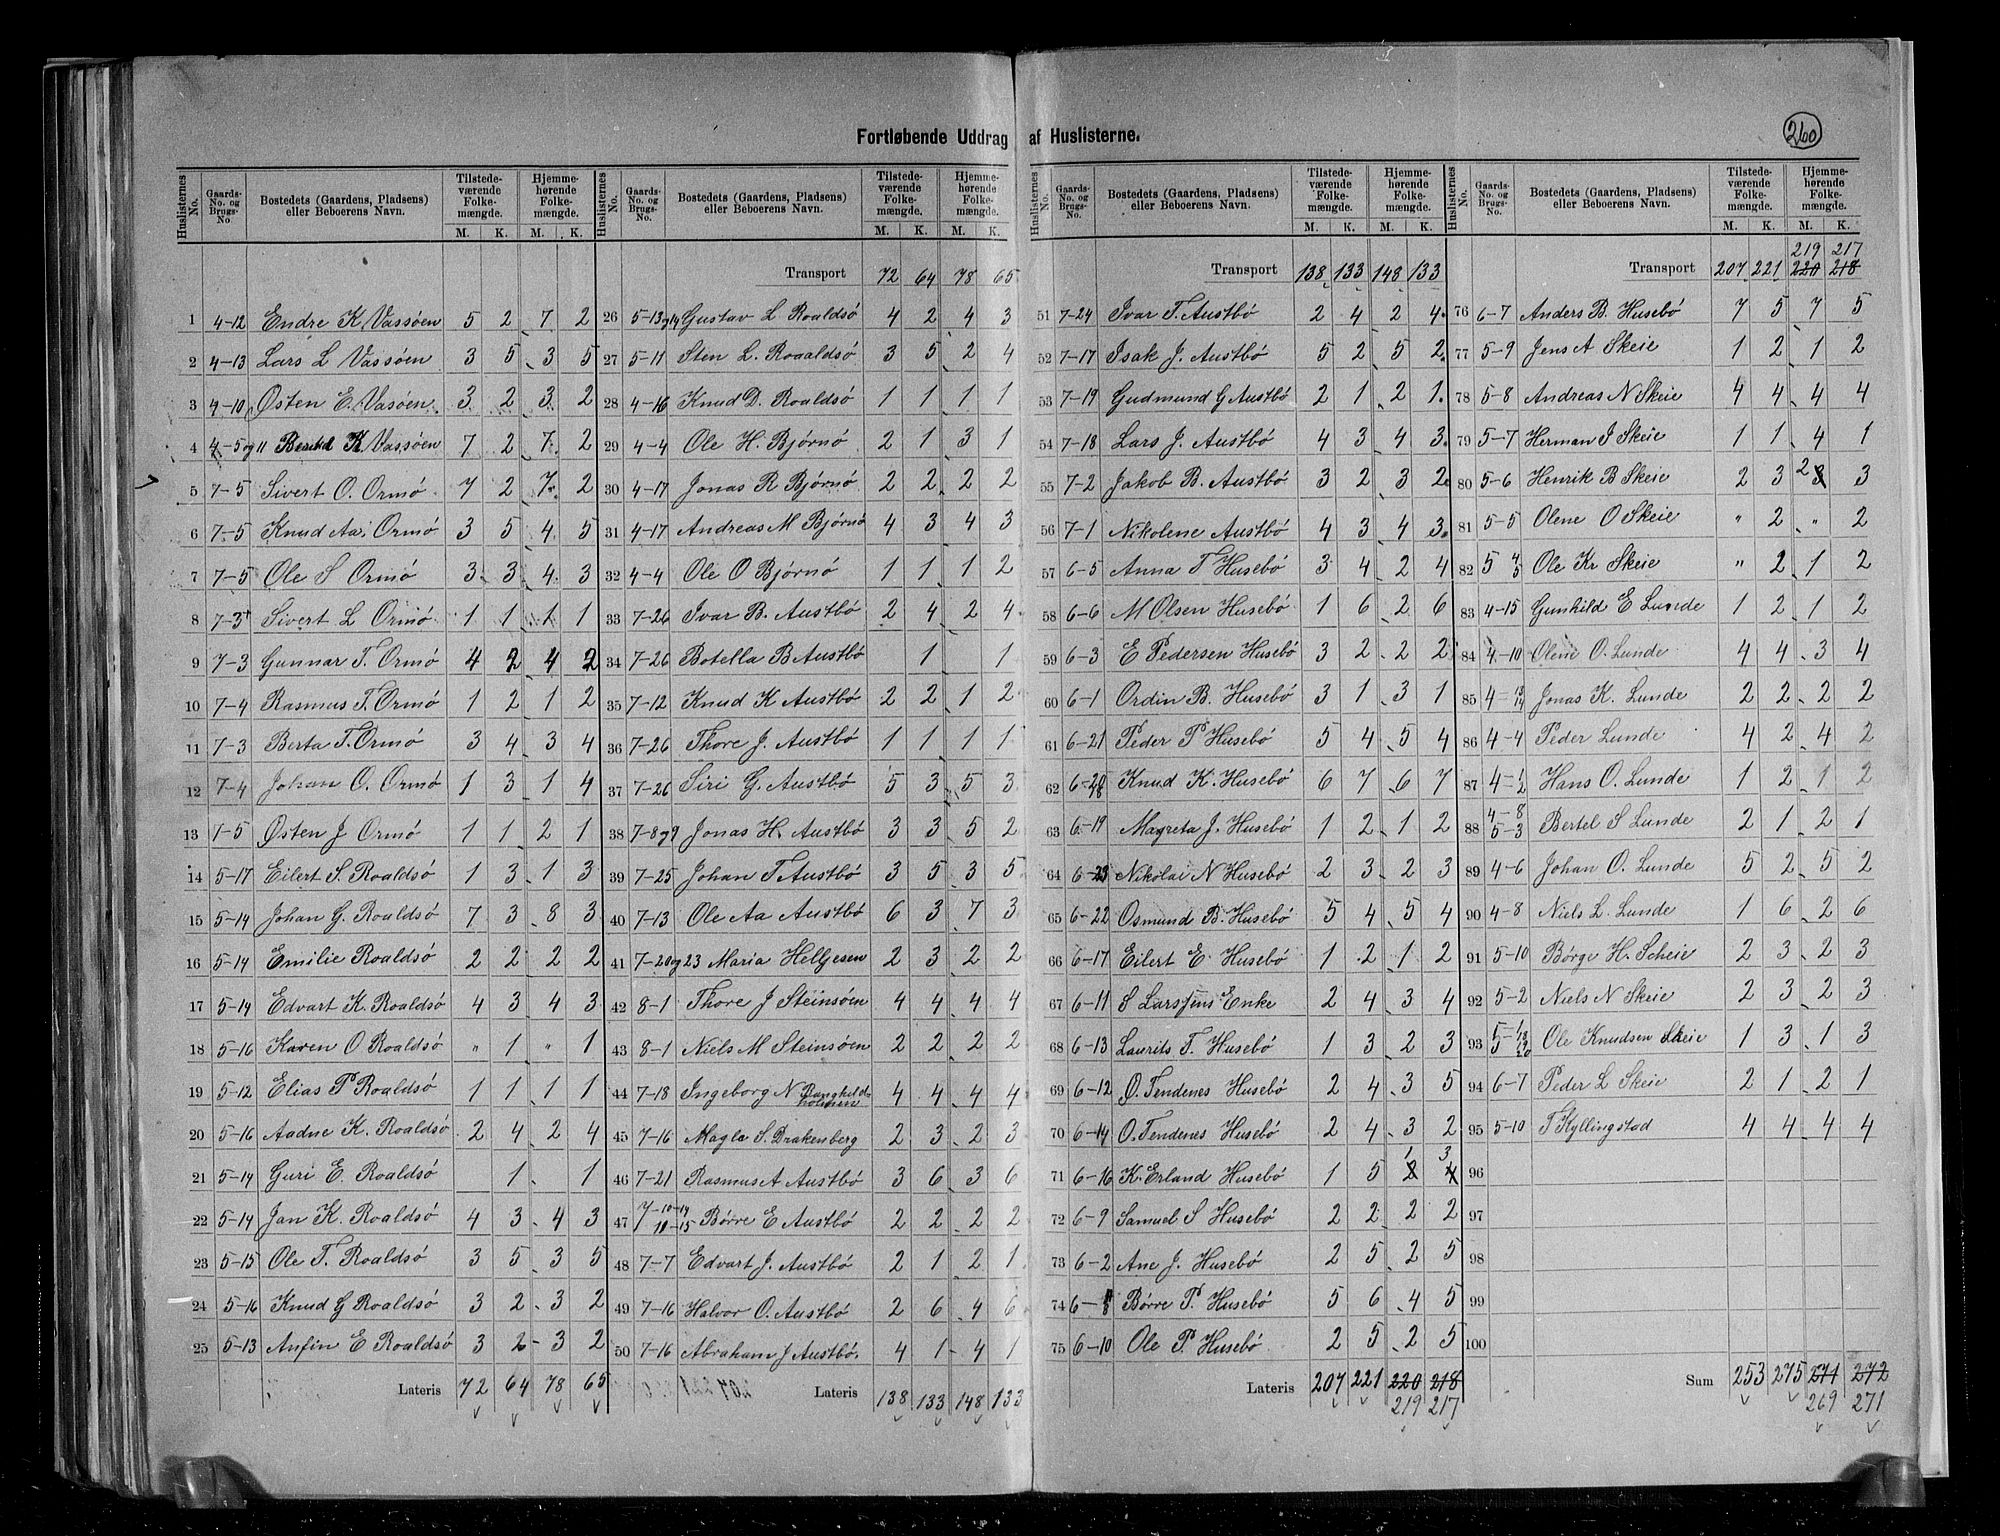 260
Fortløbende Uddrag af Huslisterne.
Huslisternes No. | Gaards-No. og Brugs-No. | Bostedets (Gaardens, Pladsens) eller Beboerens Navn. | Tilstedeværende Folkemængde. M. K. | Hjemmehørende Folkemængde. M. K.
1 4-12 Endre K. Vassøen 5 2 7 2
2 4-13 Lars L Vassøen 3 5 3 5
3 4-10 Østen E. Vasøen 3 2 3 2
4 4-5 og 11 K Vassøen 7 2 7 2
5 7-5 Sivert O. Ormø 7 2 7 2
6 7-5 Knud Aa. Ormø 3 5 4 5
7 7-5 Ole S Ormø 3 3 4 3
8 7-3 Sivert L Ormø 1 1 1 1
9 7-3 Gunnar T. Ormø 4 2 4 2
10 7-4 Rasmus T. Ormø 1 2 1 2
11 7-3 Berta T. Ormø 3 4 3 4
12 7-4 Johan O. Ormø 1 3 1 4
13 7-5 Østen J Ormø 1 1 2 1
14 5-17 Eilert S. Roaldsø 1 3 1 3
15 5-14 Johan G. Roaldsø 7 3 8 3
16 5-14 Emilie Roaldsø 2 2 2 2
17 5-14 Edvart K. Roaldsø 4 3 4 3
18 5-16 Karen O Roaldsø " 1 " 1
19 5-12 Elias P Roaldsø 1 1 1 1
20 5-16 Aadne K. Roaldsø 2 4 2 4
21 5-14 Guri E. Roaldsø 1 1
22 5-14 Jan K. Roaldsø 4 3 4 3
23 5-15 Ole T. Roaldsø 3 5 3 5
24 5-16 Knud G Roaldsø 3 2 3 2
25 5-13 Anfin E Roaldsø 3 2 3 2
Lateris 72 64 78 65
Huslisternes No. | Gaards-No. og Brugs-No. | Bostedets (Gaardens, Pladsens) eller Beboerens Navn. | Tilstedeværende Folkemængde. M. K. | Hjemmehørende Folkemængde. M. K.
Transport 72 64 78 65
26 5-13 og 14 Gustav L Roaldsø 4 2 4 3
27 5-11 Sten L. Roaaldsø 3 5 2 4
28 4-16 Knud D. Roaldsø 1 1 1 1
29 4-4 Ole H. Bjørnø 2 1 3 1
30 4-17 Jonas R Bjørnø 2 2 2 2
31 4-17 Andreas M Bjørnø 4 3 4 3
32 4-4 Ole O Bjørnø 1 1 1 2
33 7-26 Ivar B. Austbø 2 4 2 4
34 7-26 Botella B Austbø 1 1
35 7-12 Knud K Austbø 2 2 1 2
36 7-26 Thore J. Austbø 1 1 1 1
37 7-26 Siri G. Austbø 5 3 5 3
38 7-8 og 9 Jonas H. Austbø 3 3 5 2
39 7-25 Johan T Austbø 3 5 3 5
40 7-13 Ole Aa Austbø 6 3 7 3
41 7-20 og 23 Maria Helgesen 2 3 2 2
42 8-1 Thore J Steinsøen 4 4 4 4
43 8-1 Niels M Steinsøen 2 2 2 2
44 7-18 Ingeborg N Ranghildholmen 4 4 4 4
45 7-16 Magla S. Drakenberg 2 3 2 3
46 7-21 Rasmus A Austbø 3 6 3 6
47 7-10-14 10-15 Børre E Austbø 2 2 2 2
48 7-7 Edvart J. Austbø 2 1 2 1
49 7-16 Halvor O. Austbø 2 6 4 6
50 7-16 Abraham J Austbø. 4 1 4 1
Lateris 138 133 148 133
Huslisternes No. | Gaards-No. og Brugs-No. | Bostedets (Gaardens, Pladsens) eller Beboerens Navn. | Tilstedeværende Folkemængde. M. K. | Hjemmehørende Folkemængde. M. K.
Transport 138 133 148 133
51 7-24 Ivar T. Austbø 2 4 2 4
52 7-17 Isak J. Austbø 5 2 5 2
53 7-19 Gudmund G Austbø 2 1 2 1
54 7-18 Lars J. Austbø 4 3 4 3
55 7-2 Jakob B. Austbø 3 2 3 2
56 7-1 Nikolene Austbø 4 3 4 3
57 6-5 Anna T Husebø 3 4 2 4
58 6-6 M Olsen Husebø 1 6 2 6
59 6-3 E Pedersen Husebø 3 2 2 2
60 6-1 Ordin B. Husebø 3 1 3 1
61 6-21 Peder P Husebø 5 4 5 4
62 Knud K. Husebø 6 7 6 7
63 6-19 Magreta J. Husebø 1 2 1 2
64 6-23 Nikolai N Husebø 2 3 2 3
65 6-22 Osmund B. Husebø 5 4 5 4
66 6-17 Eilert E Husebø 1 2 1 2
67 6-11 S Larssens Enke 2 4 3 4
68 6-13 Laurits T. Husebø 1 3 2 3
69 6-12 O. Tendenes Husebø 2 4 3 5
70 6-14 O. Tendenes Husebø 2 4 3 2
71 6-16 K. Erland Husebø 1 5 1 3
72 6-9 Samuel S Husebø 2 2 2 2
73 6-2 Ane J. Husebø 2 5 2 5
74 6-8 Børre P. Husebø 5 6 4 5
75 6-10 Ole P. Husebø 2 5 2 5
Lateris 207 221 220 218
219 217
Huslisternes No. | Gaards-No. og Brugs-No. | Bostedets (Gaardens, Pladsens) eller Beboerens Navn. | Tilstedeværende Folkemængde. M. K. | Hjemmehørende Folkemængde. M. K.
219 217
Transport 207 221 220 218
76 6-7 Anders B. Husebø 7 5 7 5
77 5-9 Jens A Skeie 1 2 1 2
78 5-8 Andreas N Skeie 4 4 4 4
79 5-7 Herman J Skeie 1 1 4 1
80 5-6 Henrik B Skeie 2 3 2 3
81 5-5 Olene O Skeie " 2 " 2
82 5 4/5 Ole Kr Skeie " 2 1 2
83 4-15 Gunhild E Lunde 1 2 1 2
84 4-10 Olene O. Lunde 4 4 3 4
85 4-13/14 Jonas K. Lunde 2 2 2 2
86 4-4 Peder Lunde 4 2 4 2
87 4-1/2 Hans O. Lunde 1 2 1 2
88 4-8 5-3 Bertel S Lunde 2 1 2 1
89 4-6 Johan O. Lunde 5 2 5 2
90 4-8 Niels L. Lunde 1 6 2 6
91 5-10 Børge H. Scheie 2 3 2 3
92 5-2 Niels N Skeie 2 3 2 3
93 Ole Knudsen Skeie 1 3 1 3
94 6-7 Peder L Skeie 2 1 2 1
95 5-10 T Kyllingstad 4 4 4 4
96
97
98
99
100
Sum 253 275 271 272
269 271